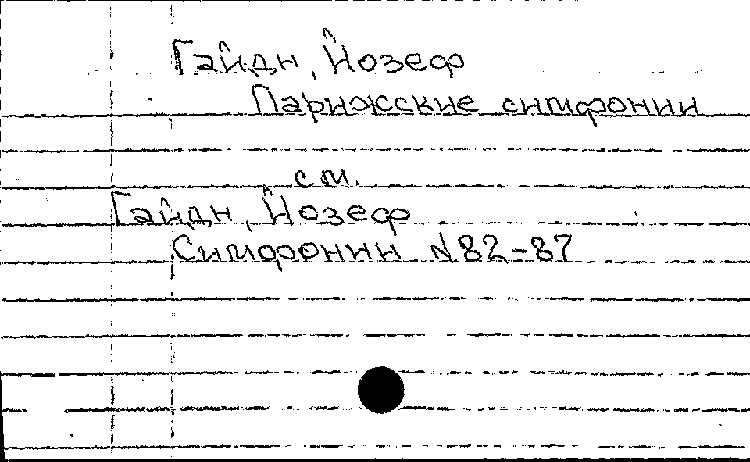 Гайдн, Йозеф
Парижские симфонии
см.
Гайдн, Йозеф
Симфонии №82-87